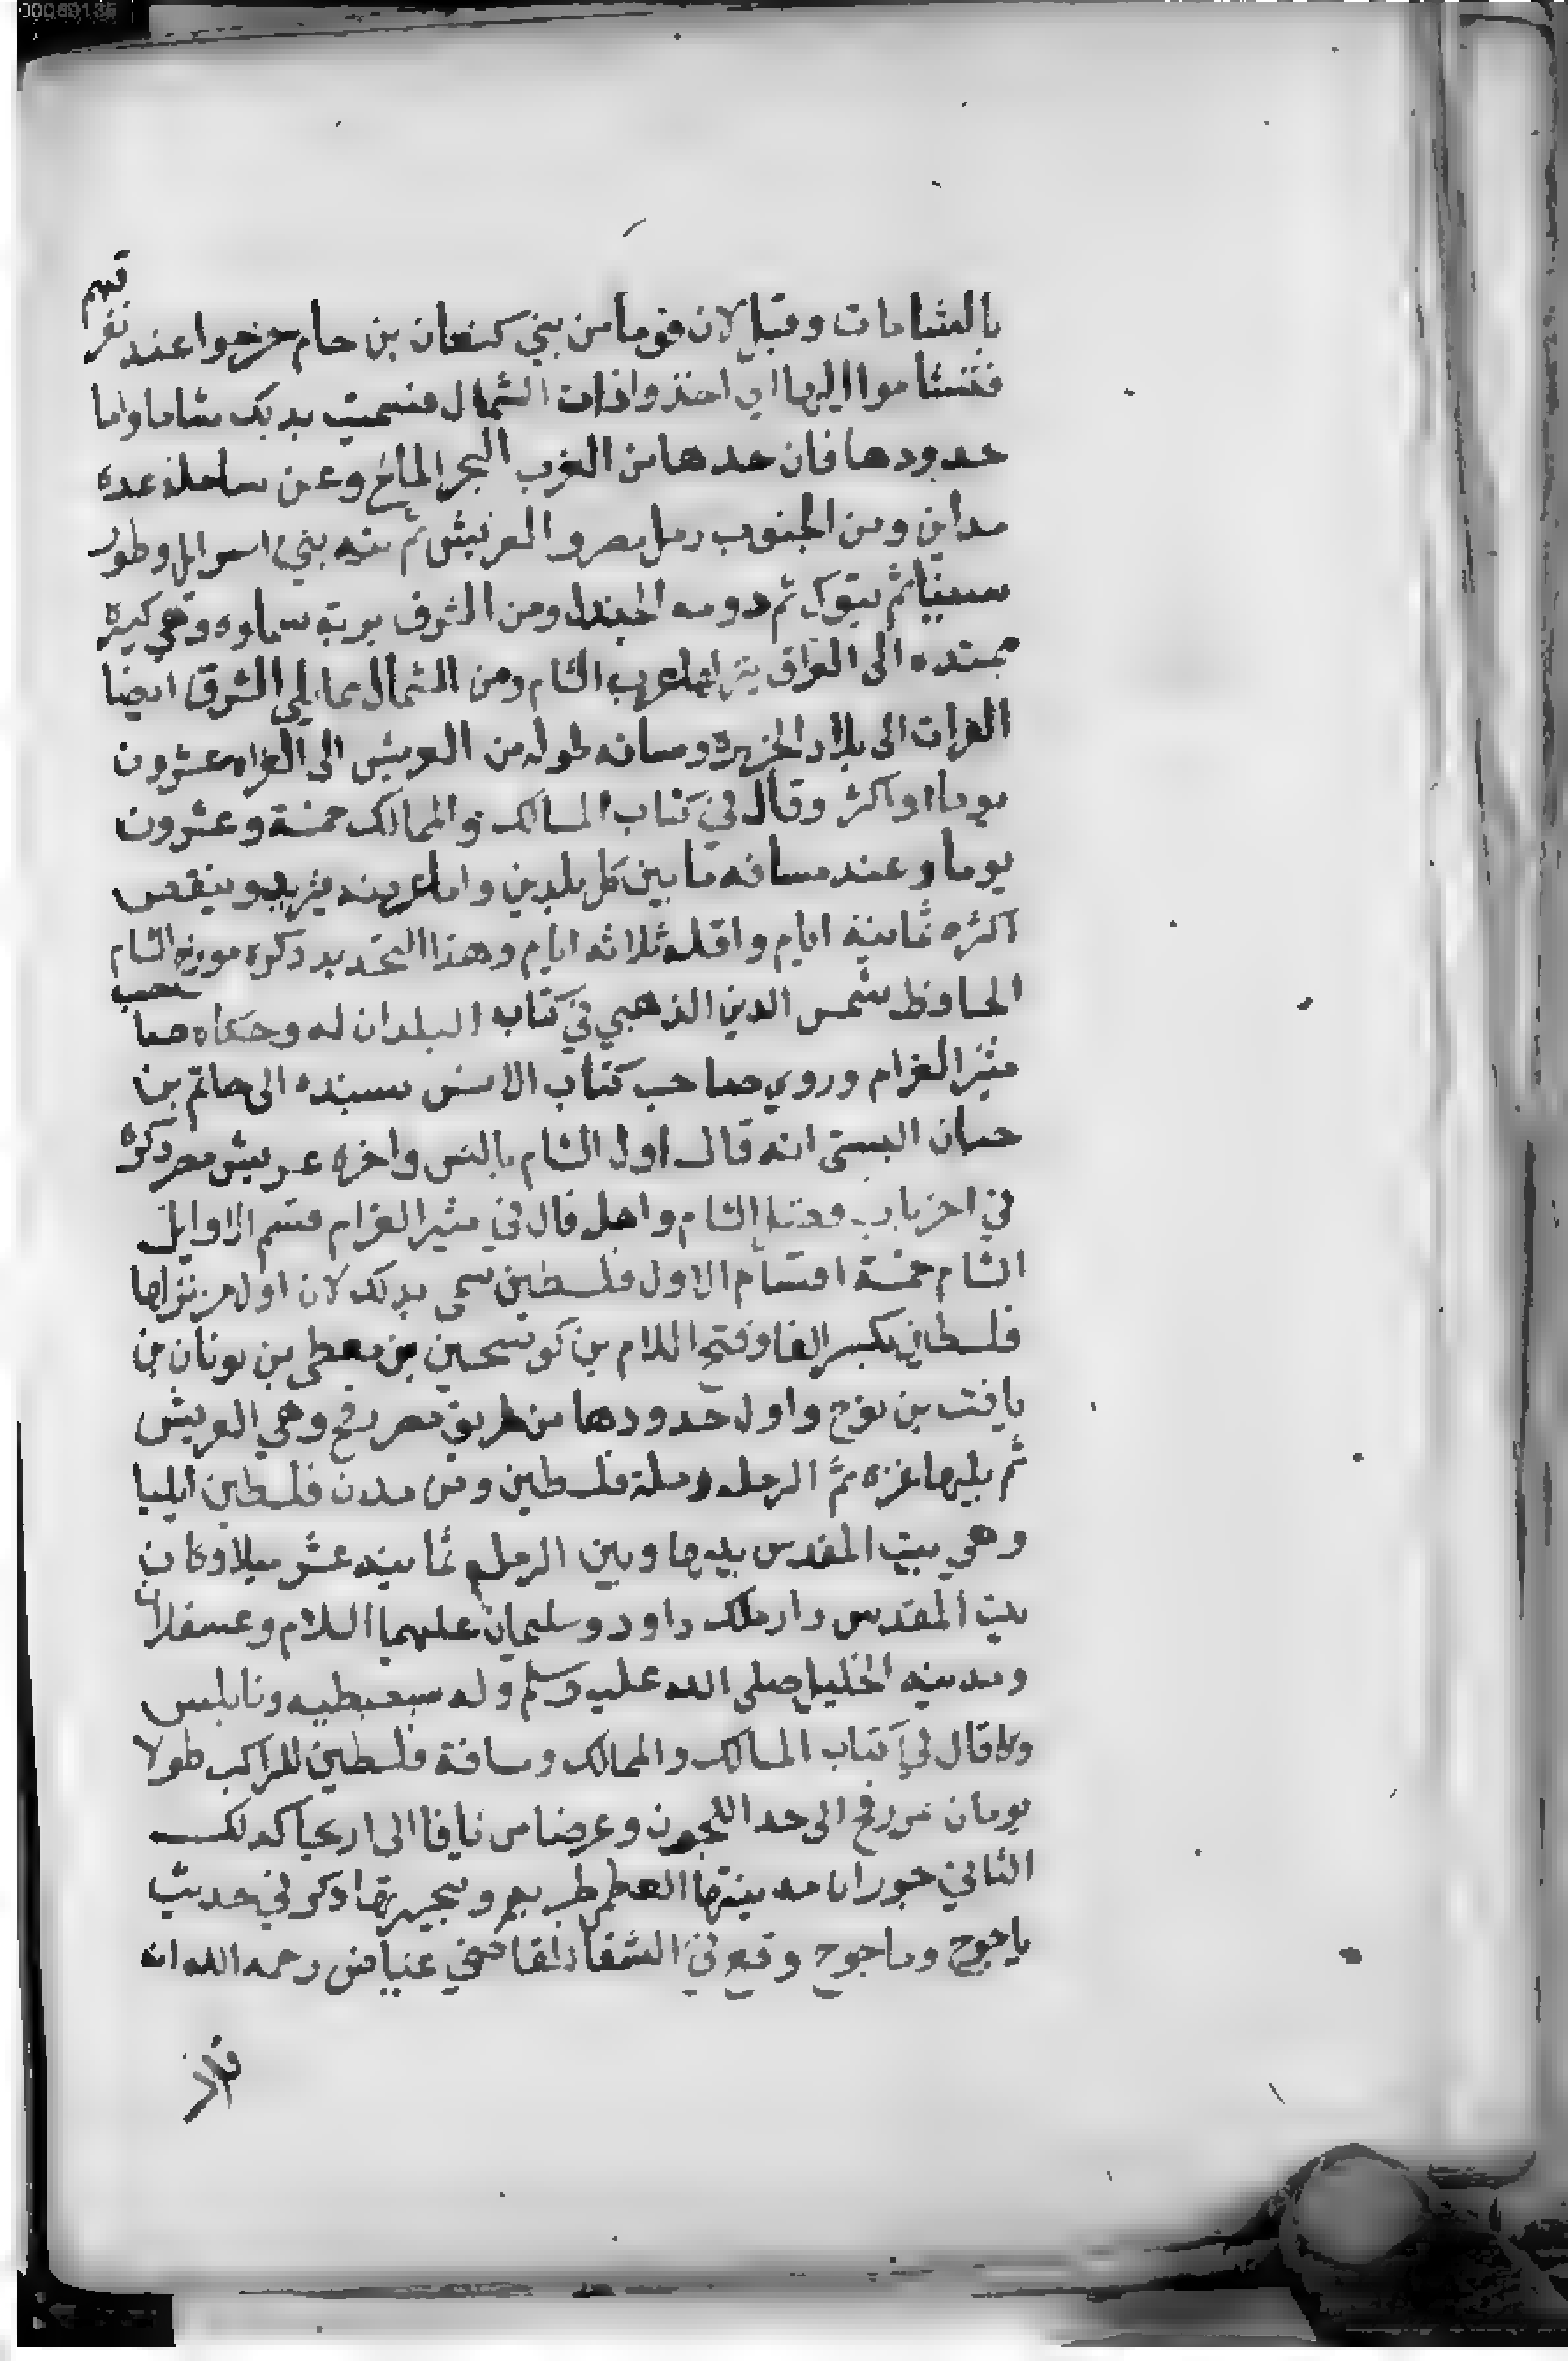 بالشامات وقيل لان قوما من بني كنعان بن حام خرجوا عند تفرقهم
فتشاموا اليها اي اخذوا ذات الشمال فسميت بذلك شاما واما
حدودها فان حدها من الغرب البحر المالح وعن ساحله عده
مداين ومن الجنوب رمل مصر والعريش ثم تيه بني اسرايل وطور
سينا ثم تبوك ثم دومه الجندل ومن الشرق برية سماوه وهي كبيره
ممتده الى العراق ينزلها عرب الشام ومن الشمال مما يلي الشرق ايضا
الفرات الى بلاد الجزيرة ومسافه طوله من العريش الى الفراه عشرون
يوما او اكثر وقال في كتاب المسالك والممالك خمسة وعشرون
يوما وعند مسافه ما بين كل بلدين واما عرضه يزيد وينقص
اكثره ثمانية ايام واقله ثلاثه ايام وهذا التحديد ذكره مورخ الشام
الحافظ شمس الدين الذهبي في كتاب البلدان له وحكاه صاحب
مثير الغرام وروي صاحب كتاب الانس بسنده الى حاتم بن
حسان البستى انه قال اول الشام بالس واخره عريش مصر ذكره
في اخر باب فضل الشام واهله قال في مثير الغرام قسم الاوايل
الشام خمسة اقسام الاول فلسطين سمى بذلك لان اول من نزلها
فلسطين بكسر الفا وفتح اللام بن كوسحين بن معطى بن يونان بن
يافت بن نوح واول حدودها من طريق مصر رفح وهي العريش
ثم يليها غزه ثم الرمله رملة فلسطين ومن مدن فلسطين ايليا
وهي بيت المقدس بينها وبين الرمله ثمانيه عشر ميلا وكان
بيت المقدس دار ملك داود وسليمان عليهما السلام وعسقلان
ومدينه الخليل صلى الله عليه وسلم وله سبسطيه ونابلس
وكما قال في كتاب المسالك والممالك ومسافة فلسطين للراكب طولا
يومان من رفح الى حد اللجون وعرضا من يافا الى اريحا كذلك
الثاني حوران مدينتها العظمى طبريه وبحيرتها ذكر في حديث
ياجوج وماجوج وقع في الشفا للقاضي عياض رحمه الله انه